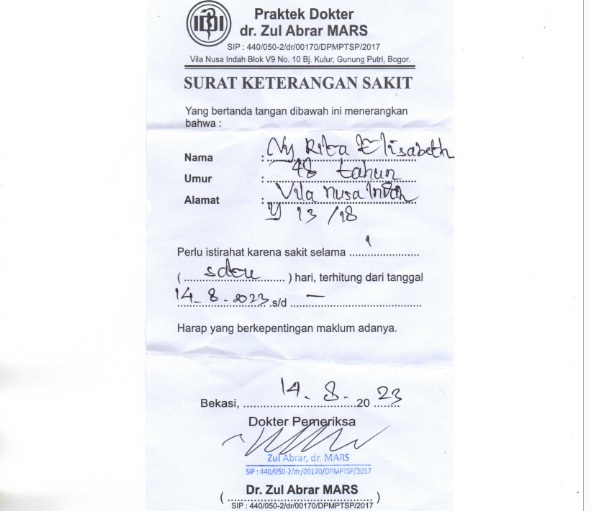 Praktek Dokter
dr. Zul Abrar MARS
SIP : 440/050-2/dr/00170/DPMPTSP/2017
Vila Nusa Indah Blok V9 No. 10 Bj. Kulur, Gunung Putri, Bogor.
SURAT KETERANGAN SAKIT
Yang bertanda tangan dibawah ini menerangkan
bahwa :
Nama : Ny Rita Elisabeth
Umur : 48 tahun
Alamat : Vila Nusa Indah
Y 13 /18
Perlu istirahat karena sakit selama 1
( ) hari, terhitung dari tanggal
14_8_2023 s/d —
Harap yang berkepentingan maklum adanya.
Bekasi, 14 - 8 - 20 23
Dokter Pemeriksa
Zul Abrar, dr. MARS
SIP : 440/050-2/dr/00170/DPMPTSP/2017
( Dr. Zul Abrar MARS )
SIP : 440/050-2/dr/00170/DPMPTSP/2017